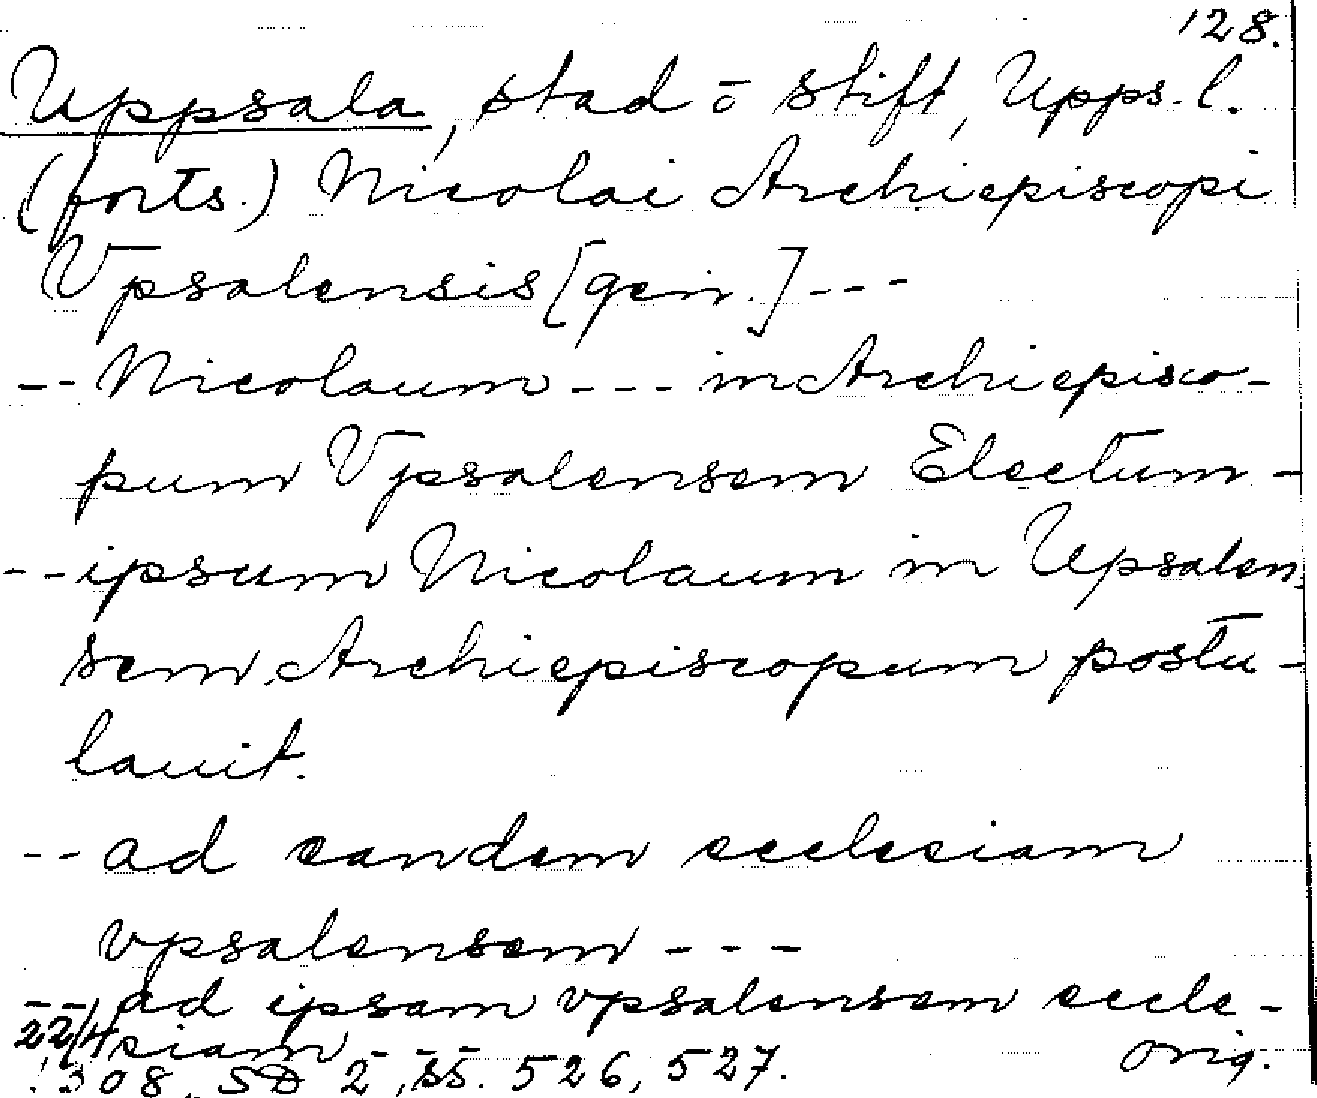 128.
Uppsala, stad o stift, Upps. l.
(forts.) Nicolai Archiepiscopi
Vpsalensis [gen.] ---
-- Nicolaum --- in Archiepisco-
pum Vpsalensem Electum -
-- ipsum Nicolaum in Upsalen
sem Archiepiscopum postu-
lauit.
-- ad eandem ecclesiam
vpsalensem ---
-- ad ipsam vpsalensem eccle-
siam ---
22/4 1308. SD 2, ss. 526, 527. orig.